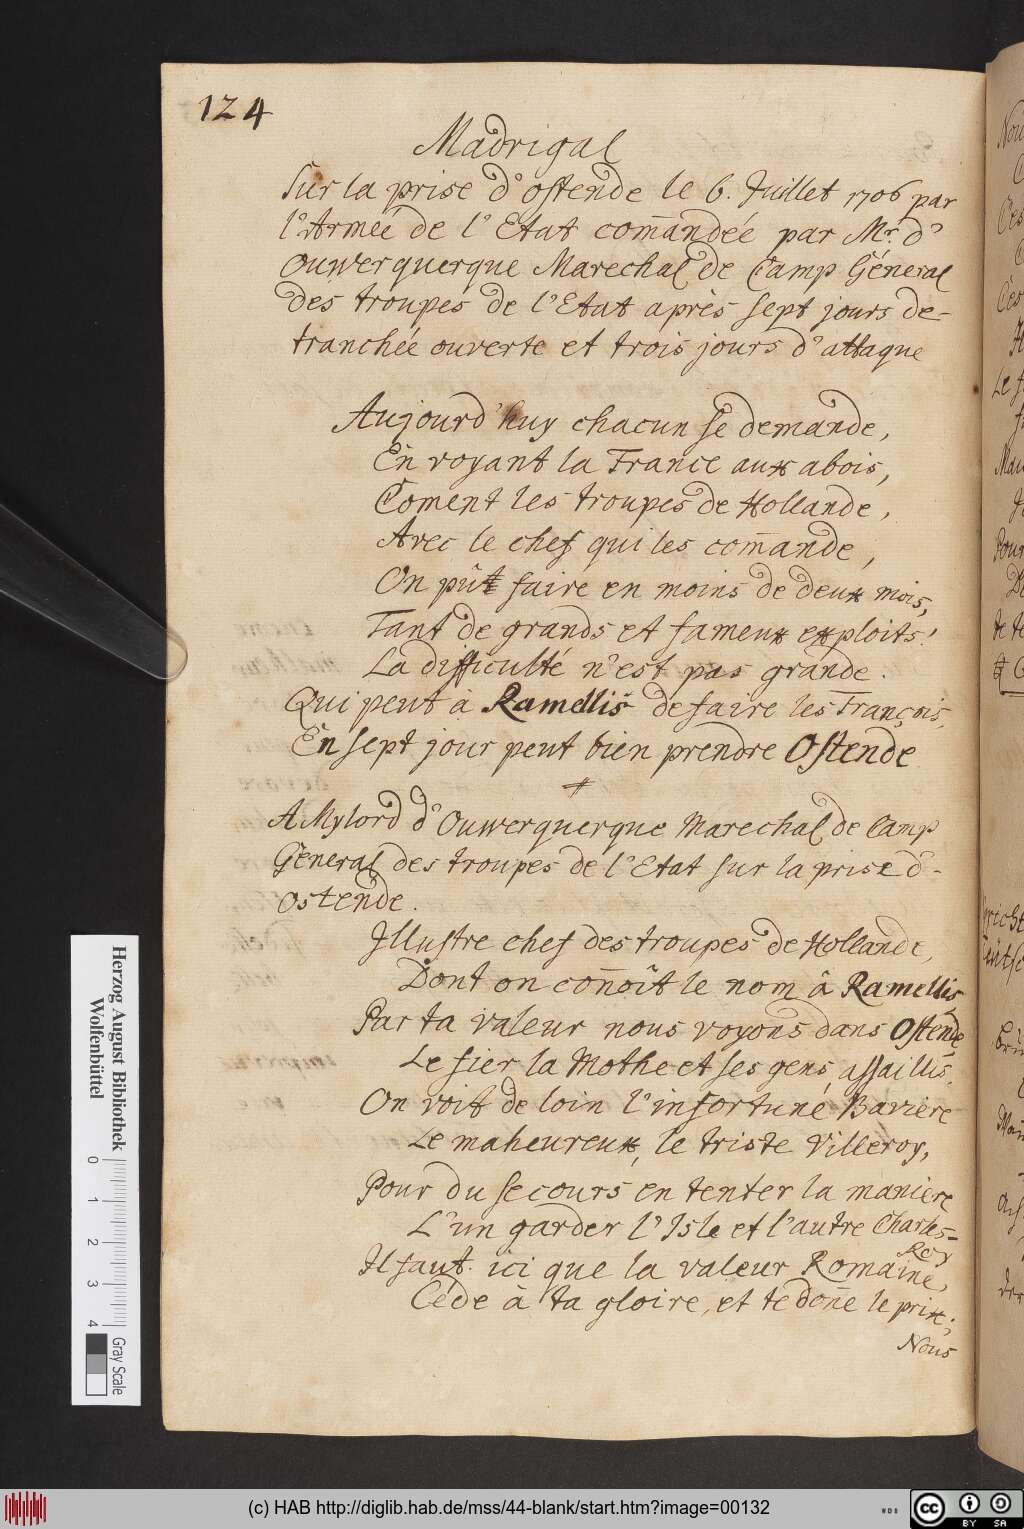 124
Madrigal
Sur la prise d'Ostende le 6. Juillet 1706 par
l'Armeé de l'Etat com̄andeé par Mr. d'
Ouwerquerque Marechal de Camp Géneral
des troupes de l'Etat après sept jours de-
tranchée ouverte et trois jours d'attaque
Aujourd'huy chacun se demande,
En voyant la France aux abois,
Coment les troupes de Hollande,
Avec le chef qui les com̄ande,
On pût faire en moins de deux mois,
Tant de grands et fameux exploits!
La difficulté n'est pas grande.
Qui peut à Ramellis defaire les François,
En sept jour peut bien prendre Ostende
A Mylord d'Ouwerquerque Marechal de Camp
General des troupes de l'Etat sur la prise d'-
Ostende.
Jllustre chef des troupes de Hollande,
Dont on con̄oît le nom â Ramellis
Par ta valeur nous voyons dans Ostende,
Le fier la Mothe et ses gens assaillis.
On voit de loin l'infortuné Baviere
Le maheureux, le triste Villeroy,
Pour du secours en tenter la maniere
L'un garder l'Isle et l'autre Charle-
Roy
Il faut ici que la valeur Romaine,
Céde à ta gloire, et te don̄e le prix;
Nous
Herzog August Bibliothek
Wolfenbüttel
0 1 2 3 4
Gray Scale
(c) HAB http://diglib.hab.de/mss/44-blank/start.htm?image=00132
WDB
CC BY SA